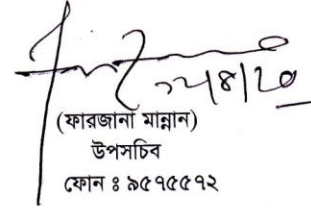 (ফারজানা মান্নান)
উপসচিব
ফোন ঃ ৯৫৭৫৫৭২